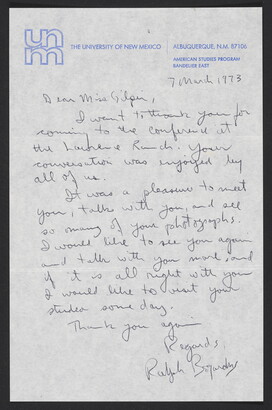 unm
THE UNIVERSITY OF NEW MEXICO
ALBUQUERQUE, N.M. 87106
AMERICAN STUDIES PROGRAM
BANDELIER EAST
7 March 1973
Dear Miss Gilpin,
I want to thank you for
coming to the conference at
the Lawrence Ranch. Your
conversation was enjoyed by
all of us.
It was a pleasure to meet
you, talk with you, and see
so many of your photographs.
I would like to see you again
and talk with you more, and
if it is all right with you
I would like to visit your
studio some day.
Thank you again
Regards,
Ralph